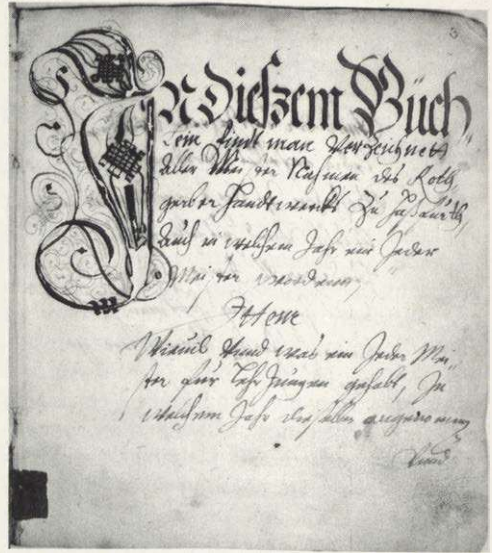 3
In dieszem Büch,,
lein findt man Verzeichnett
Aller Meister Nahmen des Roth,,
gerber Handtwercks Zu
Auch in welchem Jahr ein Jeder
Meister worden,
Item
Wieuil Vnnd was ein Jeder Mei,,
ster für Lehr Jungen gehabt, In
welchem Jahr dieselben angenomen
Vnnd